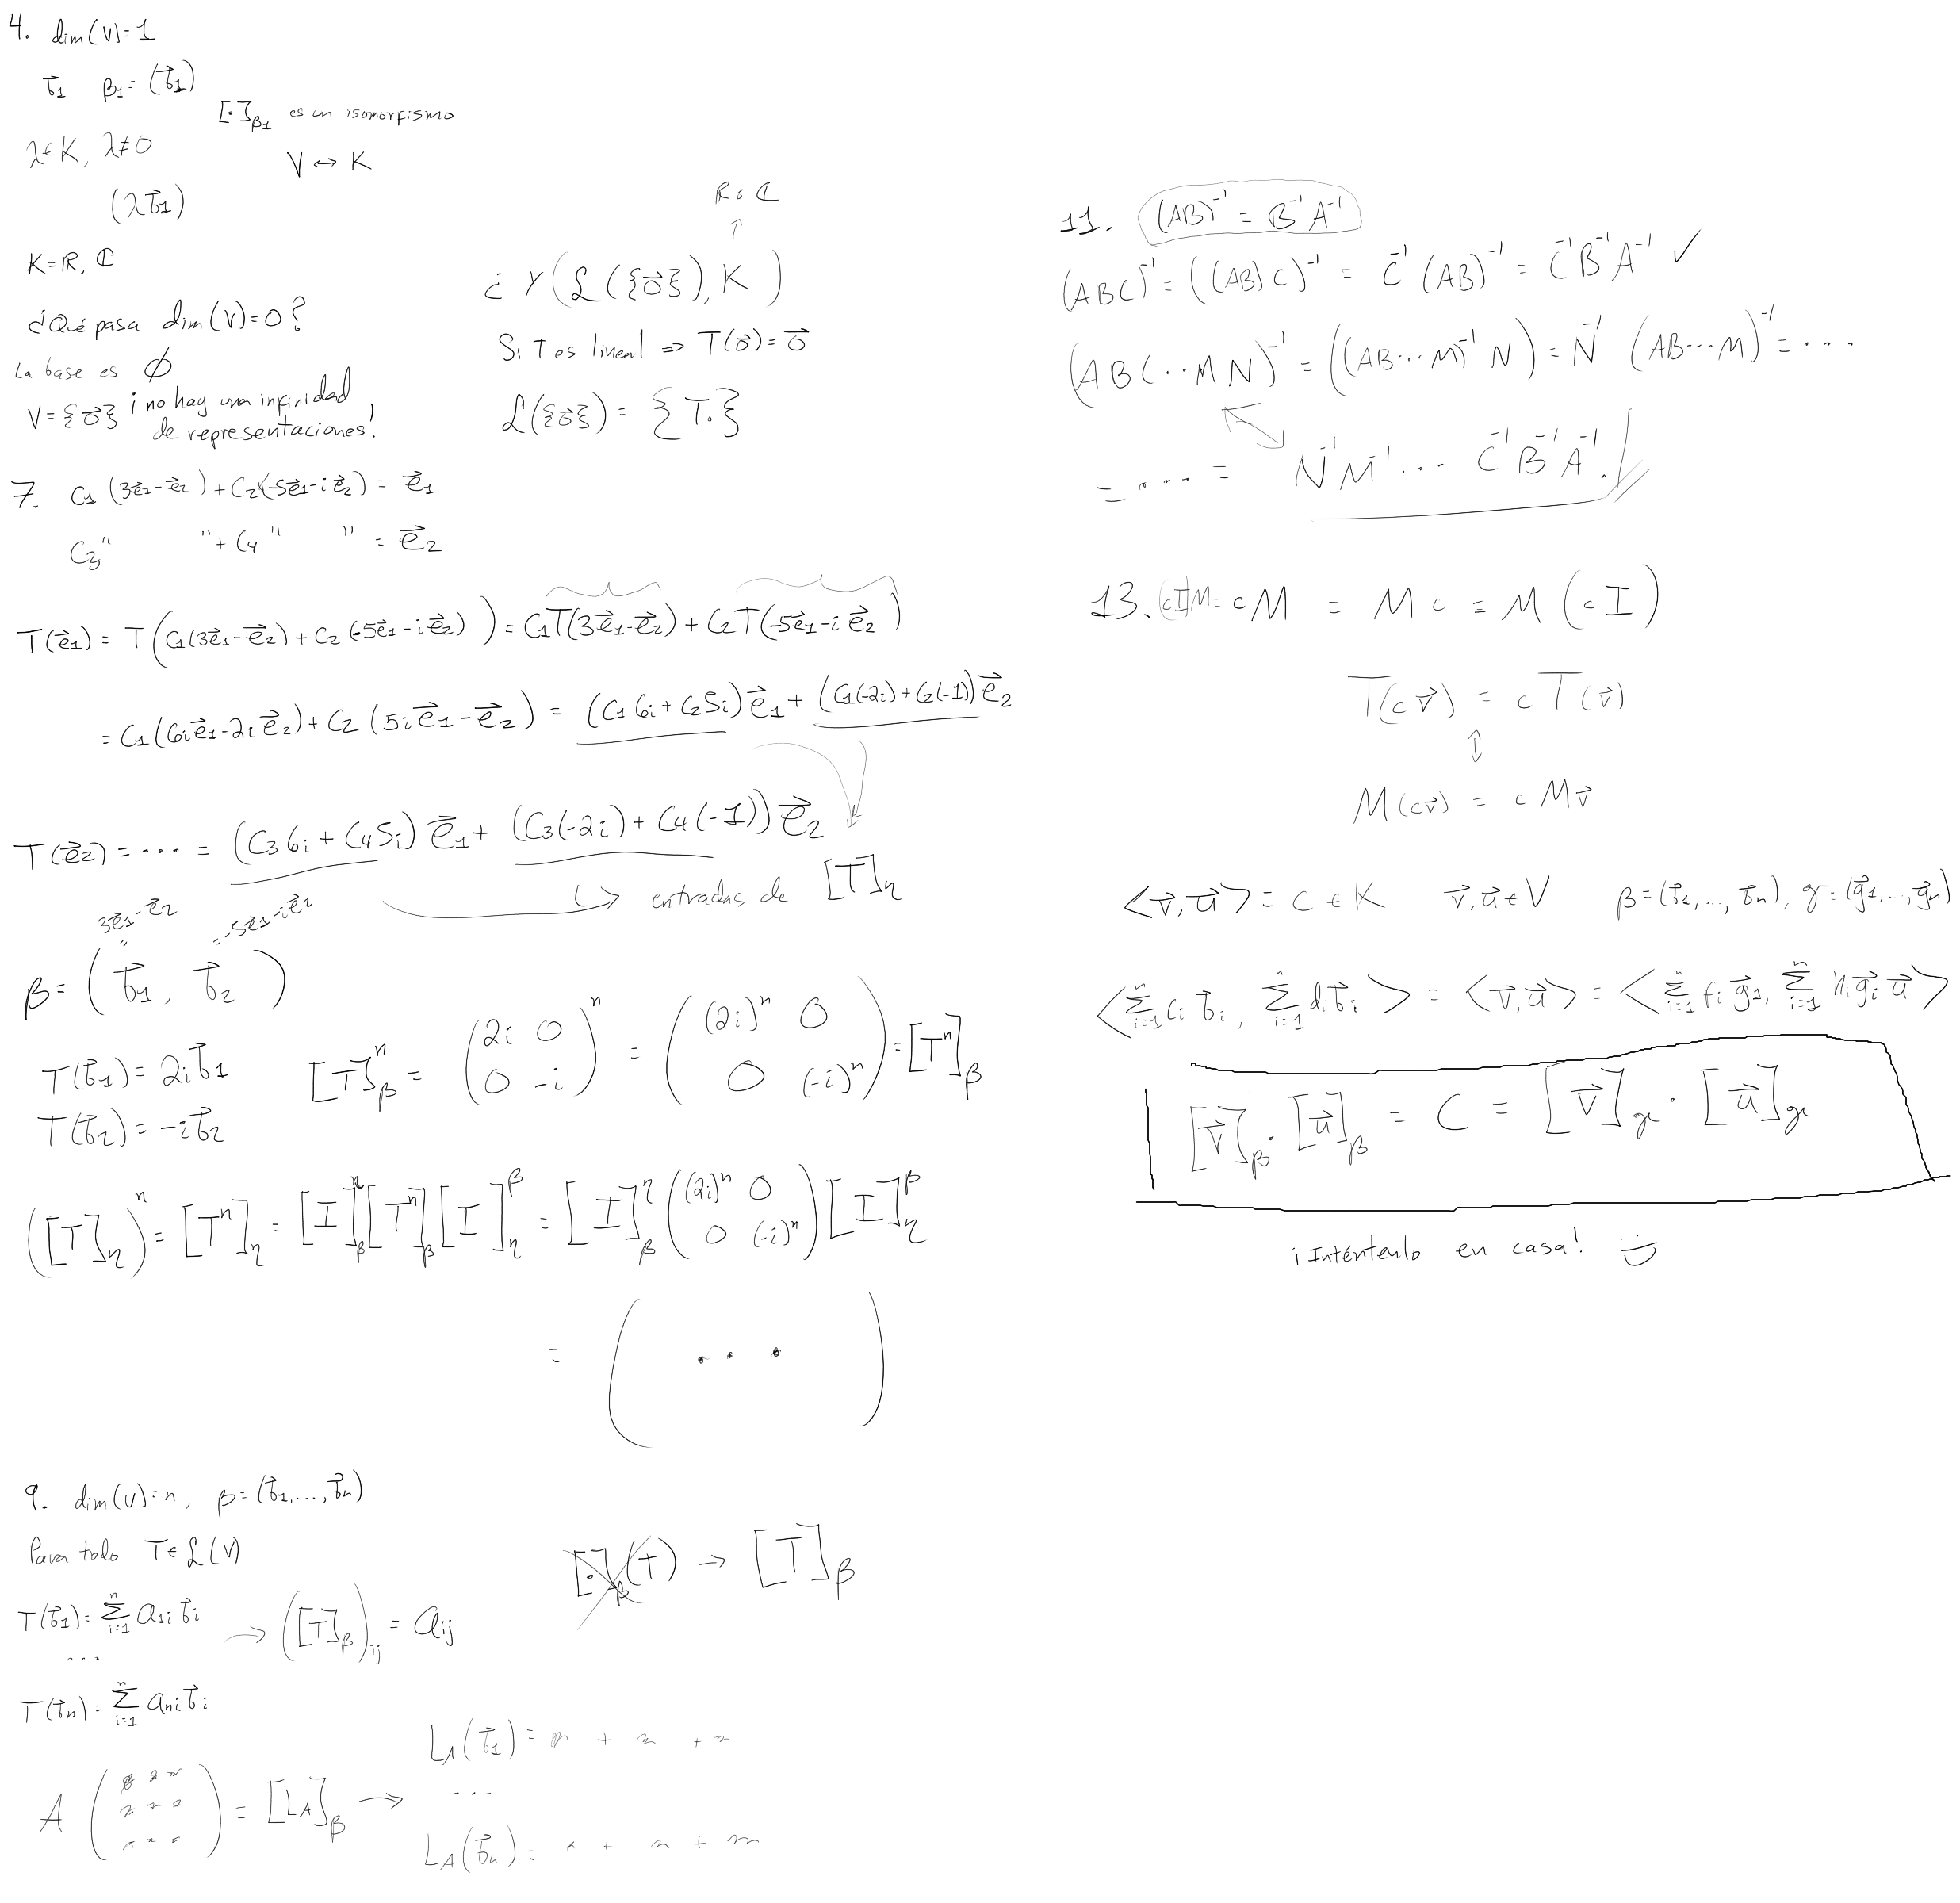 4. dim(V)=1
b⃗₁ β₁=(b⃗₁)
[·]_β₁ es un isomorfismo
λ∈K, λ≠0
V ↔ K
(λb⃗₁)
K=ℝ, ℂ
¿Qué pasa dim(V)=0?
La base es ∅
V={0⃗} ¡no hay una infinidad
de representaciones!
ℝ ó ℂ
↑
¿Y(ℒ({0⃗}), K)
Si T es lineal ⇒ T(0⃗)=0⃗
ℒ({0⃗}) = {T₀}
7. C₁(3e⃗₁-e⃗₂)+C₂(-5e⃗₁-ie⃗₂)= e⃗₁
C₃ " "+C₄ " " = e⃗₂
T(e⃗₁) = T(C₁(3e⃗₁-e⃗₂)+C₂(-5e⃗₁-ie⃗₂)) = C₁T(3e⃗₁-e⃗₂)+C₂T(-5e⃗₁-ie⃗₂)
= C₁(6ie⃗₁-2ie⃗₂)+C₂(5ie⃗₁-e⃗₂) = (C₁6i+C₂5i)e⃗₁+(C₁(-2i)+C₂(-1))e⃗₂
T(e⃗₂) = ··· = (C₃6i+C₄5i)e⃗₁+(C₃(-2i)+C₄(-1))e⃗₂
↳ entradas de [T]_η
3e⃗₁-e⃗₂ = -5e⃗₁-ie⃗₂
β=(b⃗₁, b⃗₂)
T(b⃗₁)=2ib⃗₁
T(b⃗₂)=-ib⃗₂
[T]_β^n = (2i 0
0 -i)^n = ((2i)^n 0
0 (-i)^n) = [T^n]_β
([T]_η)^n = [T^n]_η = [I]_β^η [T^n]_β [I]_η^β = [I]_β^η ((2i)^n 0
0 (-i)^n) [I]_η^β
= ( ··· )
9. dim(V)=n, β=(b⃗₁,...,b⃗n)
Para todo T∈ℒ(V)
[·]_β(T) → [T]_β
T(b⃗₁)=∑_{i=1}^n a₁ᵢb⃗ᵢ → ([T]_β)ᵢⱼ = aᵢⱼ
...
T(b⃗n)=∑_{i=1}^n aₙᵢb⃗ᵢ
A ( ) = [L_A]_β → L_A(b⃗₁)= + +
...
L_A(b⃗n)= + +
11. (AB)⁻¹ = B⁻¹A⁻¹
(ABC)⁻¹ = ((AB)C)⁻¹ = C⁻¹(AB)⁻¹ = C⁻¹B⁻¹A⁻¹ ✓
(ABC··MN)⁻¹ = ((AB···M)⁻¹N) = N⁻¹(AB···M)⁻¹ = ···
= ··· = N⁻¹M⁻¹··· C⁻¹B⁻¹A⁻¹.
13. (cI)M= cM = Mc = M(cI)
T(cv⃗) = cT(v⃗)
↕
M(cv⃗) = cMv⃗
<v⃗,u⃗>= c∈K v⃗,u⃗∈V β=(b⃗₁,...,b⃗n), γ=(g⃗₁,...,g⃗n)
<∑_{i=1}^n cᵢb⃗ᵢ, ∑_{i=1}^n dᵢb⃗ᵢ> = <v⃗,u⃗> = <∑_{i=1}^n fᵢg⃗₁, ∑_{i=1}^n hᵢg⃗ᵢ u⃗>
[v⃗]_β·[u⃗]_β = C = [v⃗]_γ·[u⃗]_γ
¡Inténtenlo en casa! :)